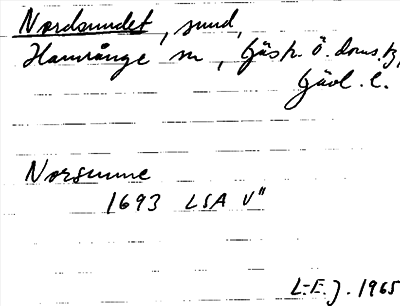 Nordsundet, sund,
Hamrånge sn, Gästr. Ö. doms.,
Gävl. l.
Norsunne
1693 LSA V"
L-E. J. 1965